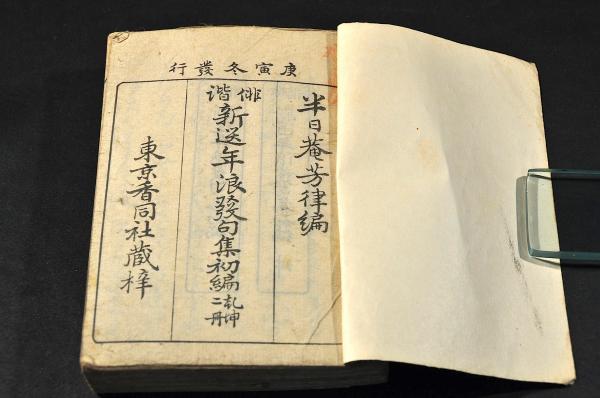 庚寅冬發行
半日菴芳律編
俳諧
新送年浪發句集初編
乾坤
二冊
東京香同社蔵梓